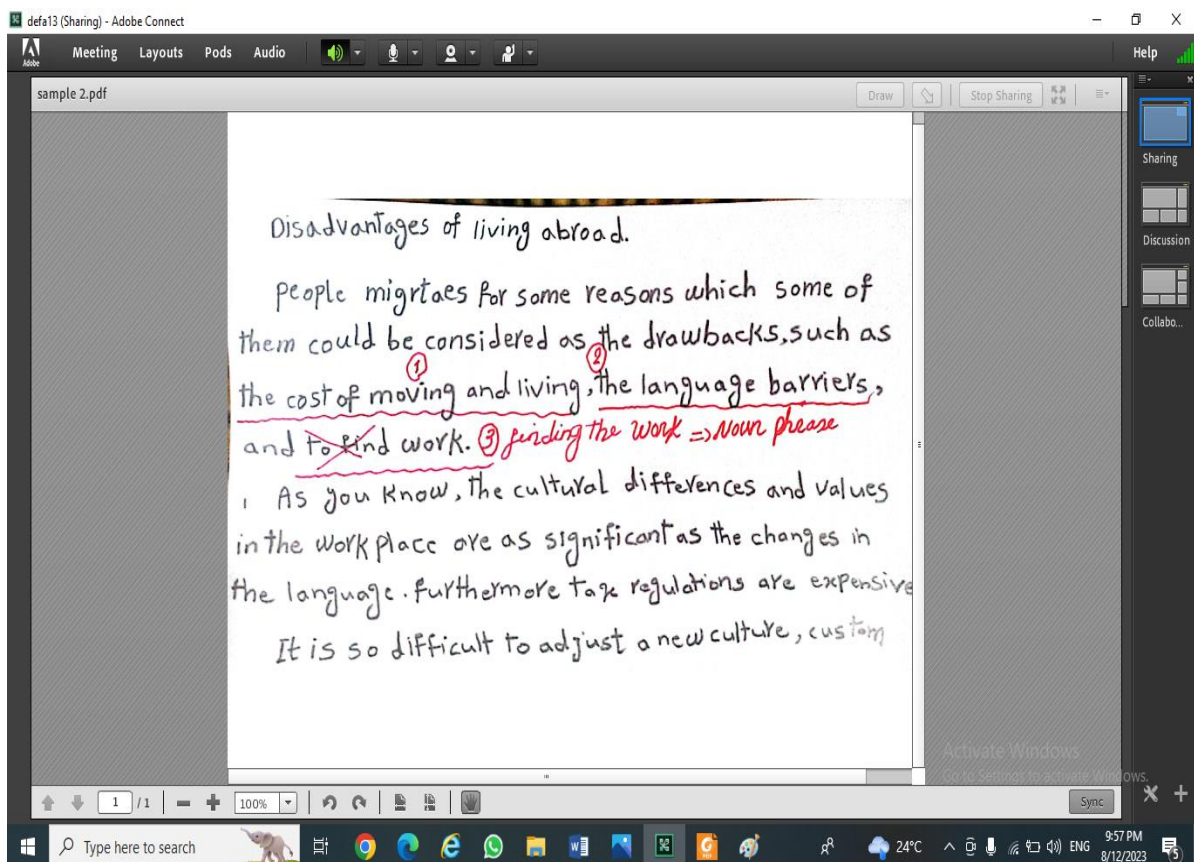 defa13 (Sharing) - Adobe Connect
Adobe Meeting Layouts Pods Audio Help
sample 2.pdf Draw Stop Sharing
Sharing
Discussion
Collabo...
Disadvantages of living abroad.
people migrtaes for some reasons which some of
them could be considered as the drawbacks, such as
1 2
the cost of moving and living, the language barriers,
and to find work. 3 finding the work => Noun phrease
1 As you know, the cultural differences and values
in the work place are as significant as the changes in
the language. furthermore tax regulations are expensive
It is so difficult to adjust a new culture, custom
Activate Windows
Go to Settings to activate Windows.
1 / 1 100% Sync
Type here to search 24°C ENG 9:57 PM
8/12/2023 5